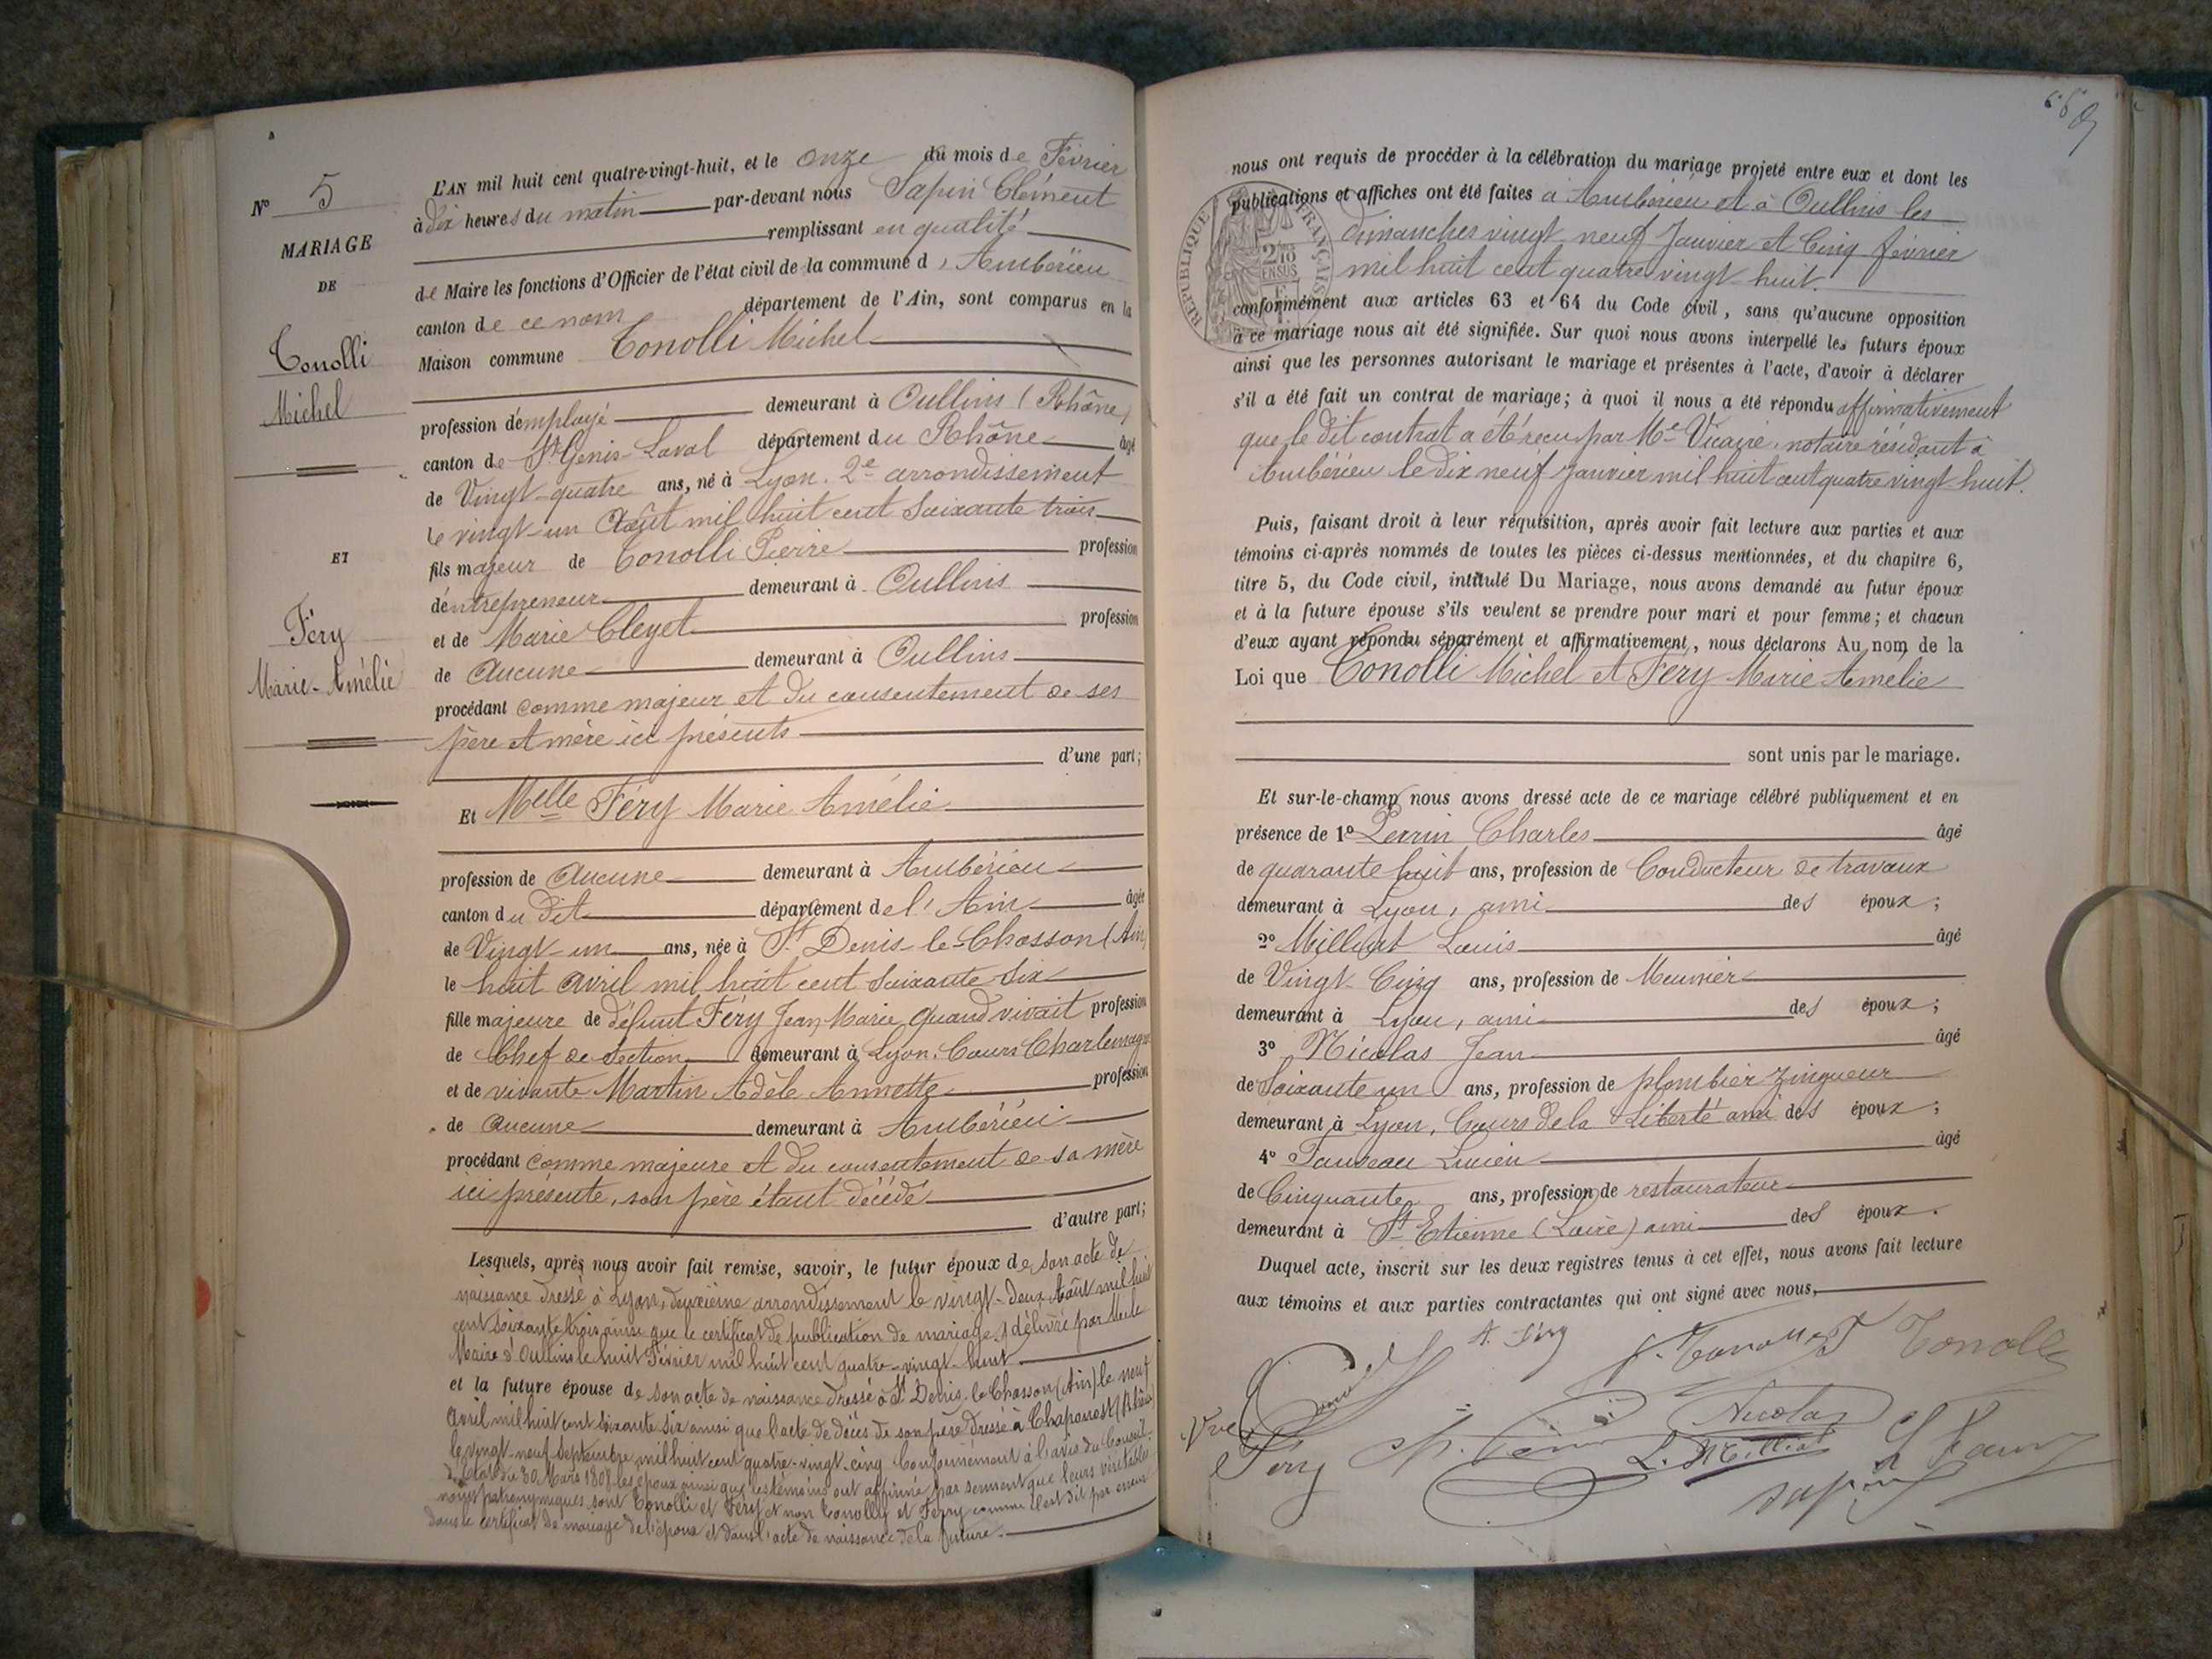 N° 5
MARIAGE
DE
Tonolli
Michel
ET
Féry
Marie-Amélie
L'AN mil huit cent quatre-vingt-huit, et le onze du mois de Février
à dix heures du matin par-devant nous Sapin Clément
remplissant en qualité
de Maire les fonctions d'Officier de l'état civil de la commune d'Ambérieu
canton de ce nom département de l'Ain, sont comparus en la
Maison commune Tonolli Michel
profession d'employé demeurant à Oullins (Rhône)
canton de St Genis-Laval département du Rhône âgé
de Vingt-quatre ans, né à Lyon. 2e arrondissement
le vingt-un Août mil huit cent soixante trois
fils majeur de Tonolli Pierre profession
d'entrepreneur demeurant à Oullins
et de Marie Cleyet profession
de Aucune demeurant à Oullins
procédant comme majeur et du consentement de ses
père et mère ici présents
d'une part;
Et Melle Féry Marie Amélie
profession de Aucune demeurant à Ambérieu
canton du dit département de l'Ain âgée
de Vingt-un ans, née à St Denis-le-Chosson (Ain)
le huit avril mil huit cent soixante six
fille majeure de défunt Féry Jean Marie, quand vivait profession
de Chef de Section demeurant à Lyon. Cours Charlemagne
et de vivante Martin Adèle Annette profession
de Aucune demeurant à Ambérieu
procédant comme majeure et du consentement de sa mère
ici présente, son père étant décédé
d'autre part;
Lesquels, après nous avoir fait remise, savoir, le futur époux de son acte de
naissance dressé à Lyon, deuxième arrondissement le vingt-deux Août mil huit
cent soixante trois ainsi que le certificat de publication de mariage, délivré par Mr le
Maire d'Oullins le huit Février mil huit cent quatre-vingt-huit
et la future épouse de son acte de naissance dressé à St Denis-le-Chosson (Ain) le neuf
Avril mil huit cent soixante six ainsi que l'acte de décès de son père dressé à Chaponost (Rhône)
le vingt-neuf Septembre mil huit cent quatre-vingt-cinq Conformément à l'avis du Conseil
d'Etat du 30 Mars 1808 les époux ainsi que les témoins ont affirmé par serment que leurs véritables
noms patronymiques sont Tonolli et Féry et non Tonolly et Ferry comme il est dit par erreur
dans le certificat de mariage de l'époux et dans l'acte de naissance de la future.
nous ont requis de procéder à la célébration du mariage projeté entre eux et dont les
publications et affiches ont été faites à Ambérieu et à Oullins les
dimanches vingt-neuf Janvier et Cinq février
mil huit cent quatre vingt-huit.
conformément aux articles 63 et 64 du Code civil, sans qu'aucune opposition
à ce mariage nous ait été signifiée. Sur quoi nous avons interpellé les futurs époux
ainsi que les personnes autorisant le mariage et présentes à l'acte, d'avoir à déclarer
s'il a été fait un contrat de mariage; à quoi il nous a été répondu affirmativement
que le dit contrat a été reçu par Me Vicaire, notaire résidant à
Ambérieu le dix neuf janvier mil huit cent quatre vingt-huit.
Puis, faisant droit à leur réquisition, après avoir fait lecture aux parties et aux
témoins ci-après nommés de toutes les pièces ci-dessus mentionnées, et du chapitre 6,
titre 5, du Code civil, intitulé Du Mariage, nous avons demandé au futur époux
et à la future épouse s'ils veulent se prendre pour mari et pour femme; et chacun
d'eux ayant répondu séparément et affirmativement, nous déclarons Au nom de la
Loi que Tonolli Michel et Féry Marie Amélie
sont unis par le mariage.
Et sur-le-champ nous avons dressé acte de ce mariage célébré publiquement et en
présence de 1° Perrin Charles âgé
de quarante huit ans, profession de Conducteur de travaux
demeurant à Lyon, ami des époux;
2° Milliat Louis âgé
de Vingt-Cinq ans, profession de Meunier
demeurant à Lyon, ami des époux;
3° Nicolas Jean âgé
de Soixante un ans, profession de plombier zingueur
demeurant à Lyon, Cours de la Liberté ami des époux;
4° Lucien âgé
de Cinquante ans, profession de restaurateur
demeurant à St Etienne (Loire) ami des époux.
Duquel acte, inscrit sur les deux registres tenus à cet effet, nous avons fait lecture
aux témoins et aux parties contractantes qui ont signé avec nous,
A. Féry Tonolli
Nicolas
Vve Féry L. Milliat
Sapin